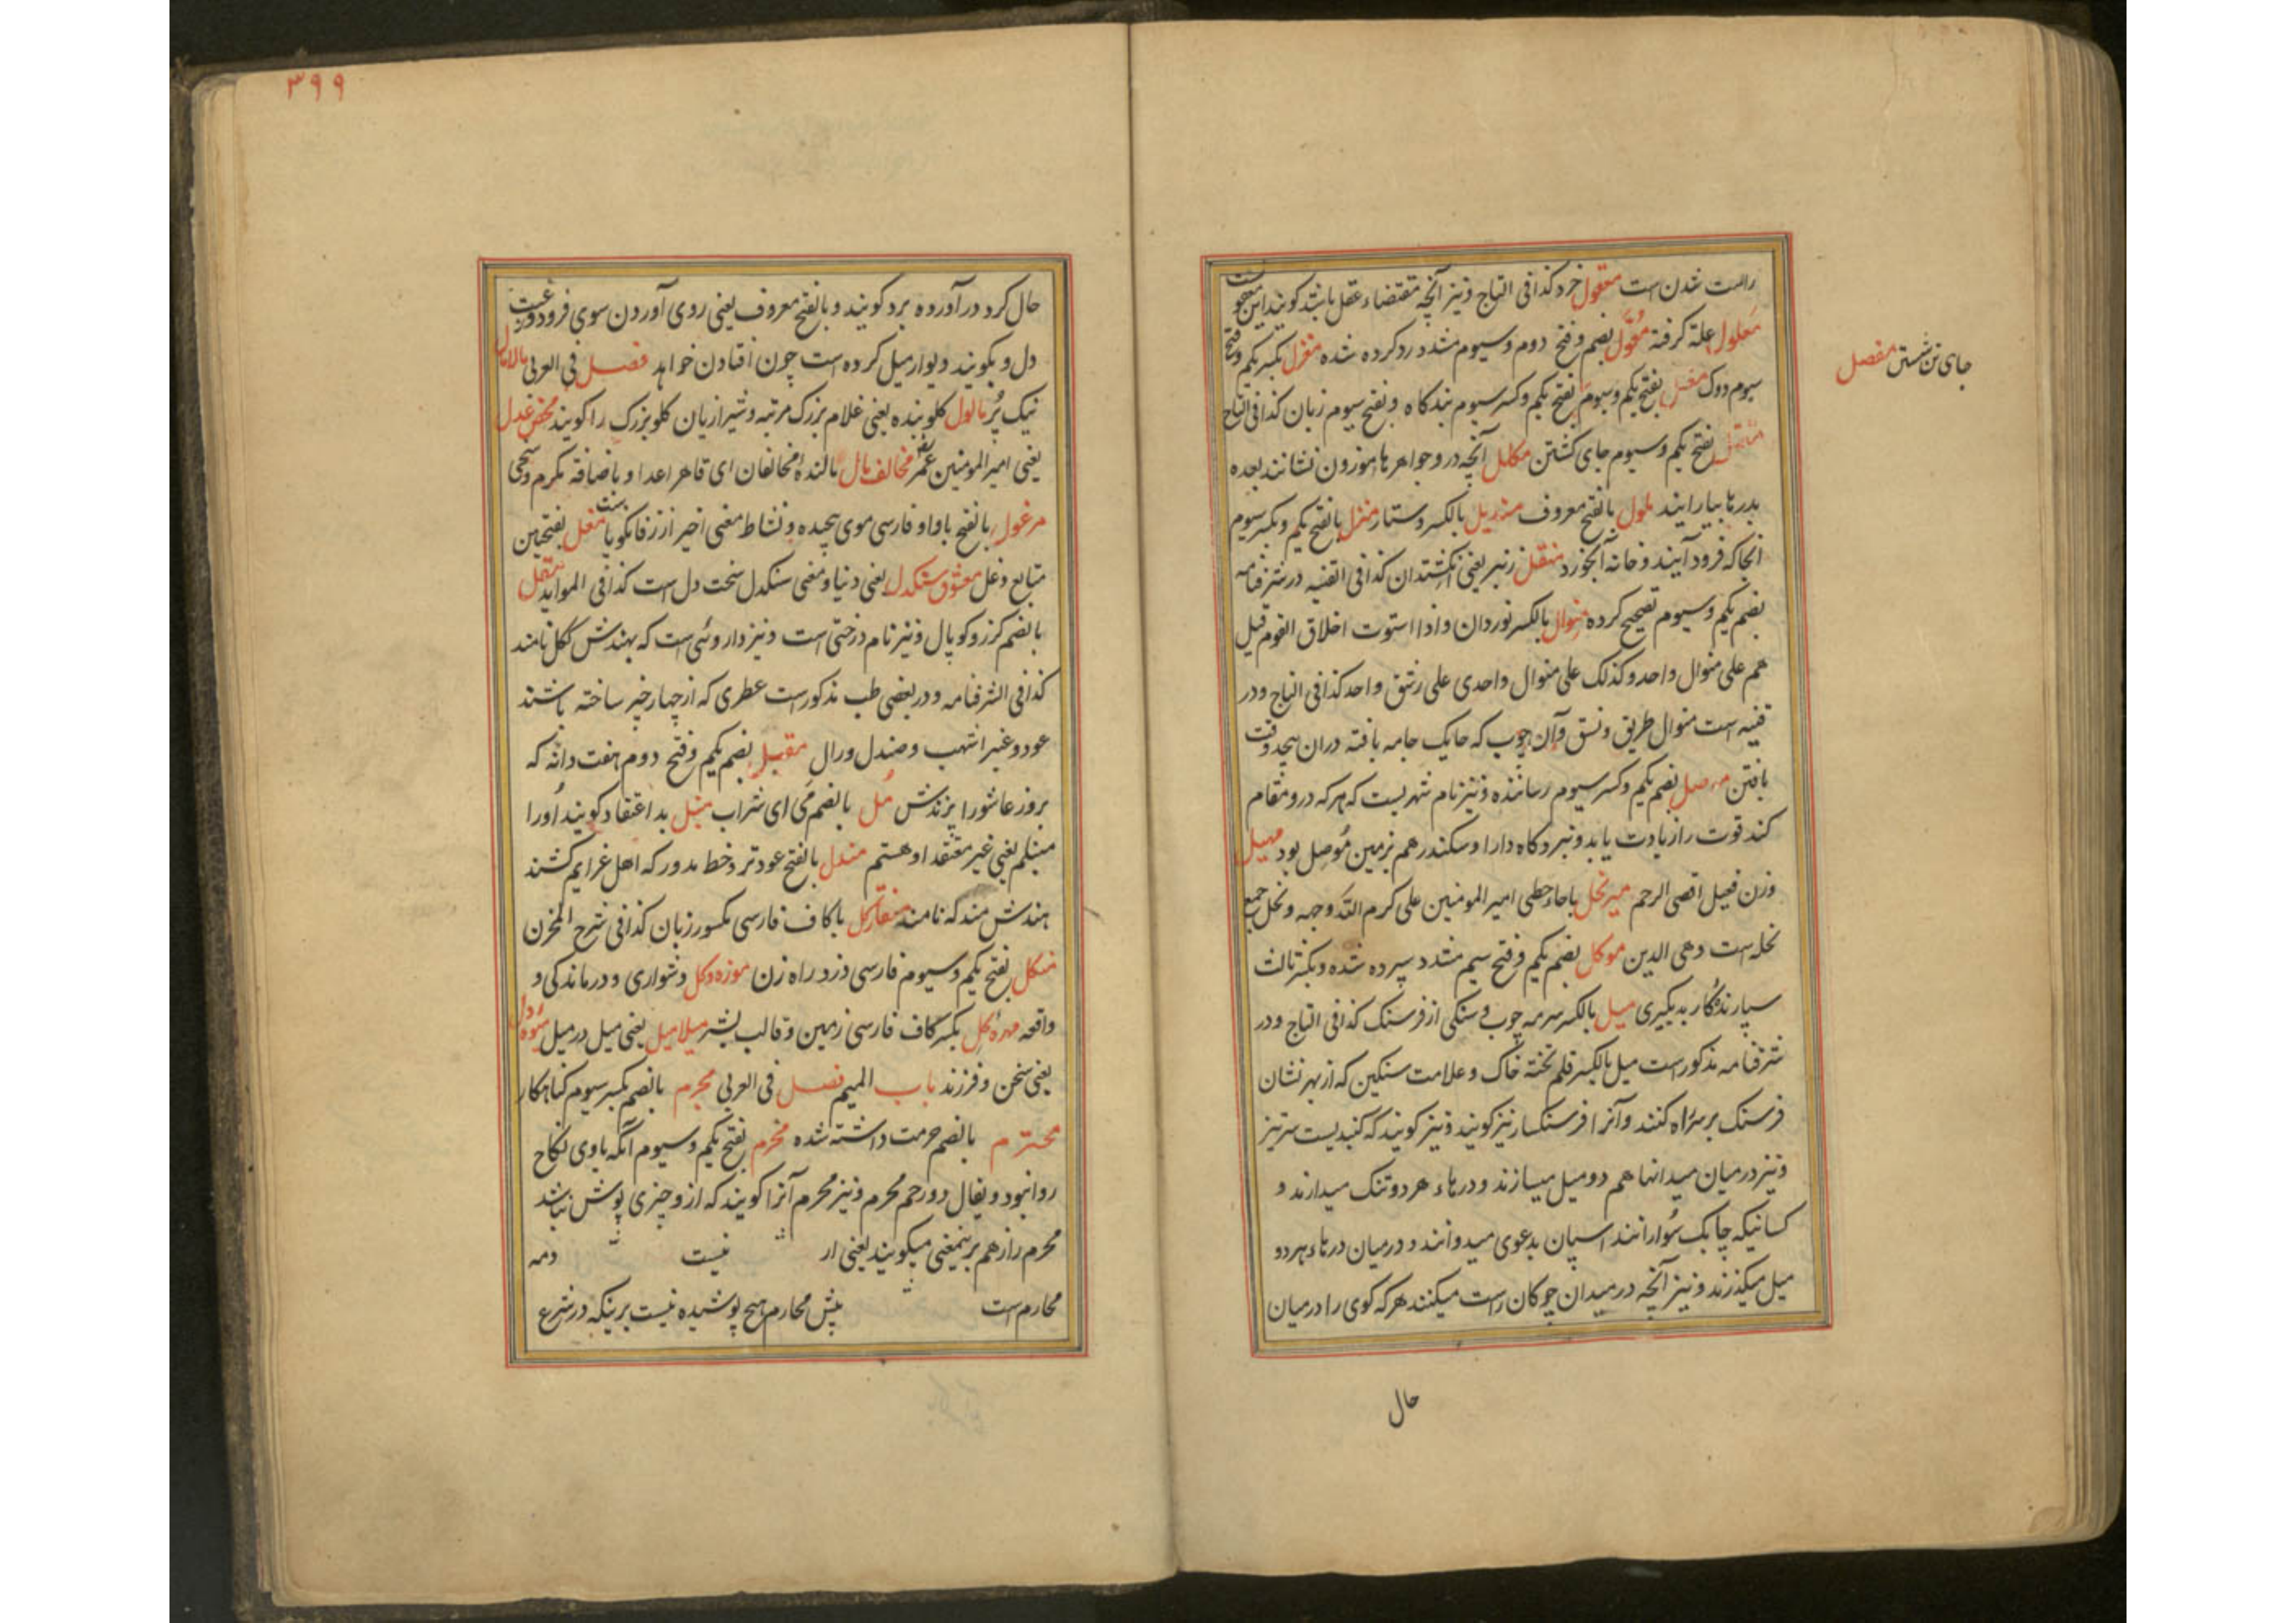 راست شدن است معقول خرد کذا فی التاج و نیز آنچه مقتضاء عقل باشد کویند این معقو ست
معلول علة کرفته مُعَوَّل بضم و فتح دوم و سیوم مشدد رد کرده شده مغزل بکسر یکم و فتح
جای تن شستن مفصل
سیوم دوک مغسل بفتح یکم و سیوم بفتح یکم و کسر سیوم بندکاه و بفتح سیوم زبان کذا فی التاج
بفتح یکم و سیوم جای کشتن مکلل آنچه در و جواهرها موزون نشانند بعده
بدرها بیارایند ملول بالفتح معروف مندیل بالکسر دستار منزل بالفتح یکم و بکسر سیوم
آنجا که فرود آیند و خانه آبخورد منقل زنبر یعنی انکشتدان کذا فی القنیه در شرفنامه
بضم یکم و سیوم تصحیح کرده منوال بالکسر نوردان و اذا استوت اخلاق القوم قیل
هم علی منوال واحد و کذلک علی منوال واحدی علی رشق واحد کذا فی التاج و در
قنیه است منوال طریق و نسق و آن چوب که حایک جامه بافته دران پیچد وقت
بافتن موصل بضم یکم و کسر سیوم رساننده و نیز نام شهریست که هر که درو مقام
کند قوت را زیادت یابد و نبردکاه دارا و سکندر هم بزمین مُوصل بود مهبل
وزن فعیل اقصی الرحم میر نحل باحاء حطی امیر المومنین علی کرم الله وجهه و نحل جمع
نحله است وهی الدین موکل بضم یکم و فتح سیم مشدد سپرده شده و بکسر ثالث
سپارنده کار به دیگیری میل بالکسر سرمه چوب و سنکی از فرسنک کذا فی التاج و در
شرفنامه مذکور است میل بالکسر قلم تخته خاک و علامت سنکین که از بهر نشان
فرسنک بر سر راه کنند و آنرا فرسنکسار نیز کویند و نیز کویند که کنبدیست سر تیز
و نیز در میان میدانها هم دو میل میسازند و درهاء هر دو تنک میدارند و
کسانیکه چابک سُوارانند اسپان بدعوی میدوانند و درمیان درهاء هر دو
میل میکذرند و نیز آنچه در میدان چوکان راست میکنند هر که کوی را در میان
حال
۳۹۹
حال کرد در آورده برد کویند و بالفتح معروف یعنی روی آوردن سوی فرود و رغبت
دل و بکویند دیوار میل کرده است چون افتادن خواهد فصل فی العربی
نیک پُر مالول کلو بنده یعنی غلام بزرک مرتبه و شیرازیان کلو بزرک را کویند محض عدل
یعنی امیر المومنین عمر مخالف مال مالندهٔ مخالفان ای قاهر اعدا و باضافة مکرم و سخی
مرغول بالفتح باواو فارسی موی پیچیده و نشاط معنی اخیر از زفانکویا ست مغل بفتحتین
متابع و غل معشوق سنکدل یعنی دنیا و معنی سنکدل سخت دل است کذا فی المواید مقل
بالضم کرز و کوپال و نیز نام درختی است و نیز داروئی است که بهندش ککل نامند
کذا فی الشرفنامه و در بعضی طب مذکور است عطری که از چهار چیز ساخته باشند
عود و عنبر اشهب و صندل و رال مقبل بضم یکم و فتح دوم هفت دانه که
بروز عاشورا پزندش مُل بالضم مَی ای شراب منبل بداعتقاد کویند اورا
منبلم یعنی غیر معتقد او هستم مندل بالفتح عود تر و خط مدور که اهل عزایم کشند
هندش مندکه نامند منقار کل باکاف فارسی مکسور زبان کذا فی شرح المخزن
منکل بفتح یکم و سیوم فارسی دزد راه زن موزه و کل دشواری و درماندکی و
واقعه مهره کل بکسر کاف فارسی زمین و قالب بشر میلامیل یعنی میل در میل میوه دل
یعنی سخن و فرزند باب المیم فصل فی العربی مجرم بالضم بکسر سیوم کناهکار
محترم بالضم حرمت داشته شده محرم بفتح یکم و سیوم آنکه باوی نکاح
روا نبود و یقال ذو رحم محرم و نیز محرم آنرا کویند که ازو چیزی پوش نباشد
محرم راز هم برینمعنی میکویند یعنی از نیست
محارم است پیش محارم هیچ پوشیده نیست برینکه در شرع